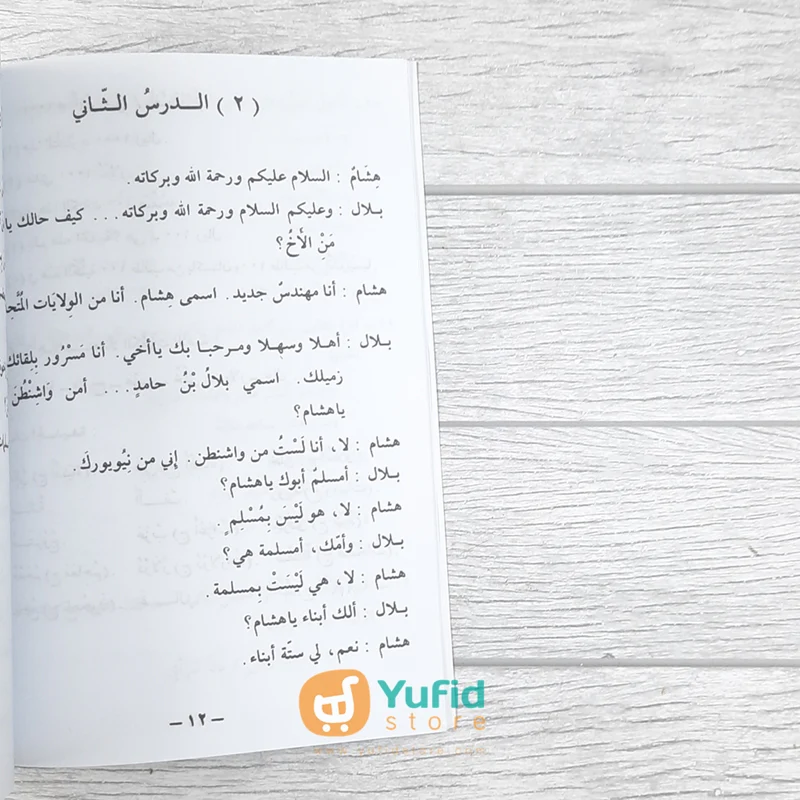 ( ٢ ) الـدرسُ الـثّاني
هِشَامٌ : السلام عليكم ورحمة الله وبركاته.
بـلال : وعليكم السلام ورحمة الله وبركاته... كيف حالك يا
مَنْ الأَخُ؟
هشام : أنا مهندسٌ جديد. اسمى هِشام. أنا من الوِلايَات
بـلال : أهلا وسهلا ومرحبا بك ياأخي. أنا مَسْرُور بِلِقائك
زميلك. اسمي بلالُ بْنُ حامدٍ... أمن وَاشِنْطُنَ
ياهشام؟
هشام : لا، أنا لَسْتُ من واشنطن. إني من نِيُويوركَ.
بـلال : أمسلمٌ أبوك ياهشام؟
هشام : لا، هو لَيْسَ بِمُسْلِمٍ.
بـلال : وأمّك، أمسلمة هي؟
هشام : لا، هي لَيْسَتْ بِمسلمة.
بـلال : ألك أبناء ياهشام؟
هشام : نعم، لي ستّة أبناء.
– ١٢ –
Yufid
store